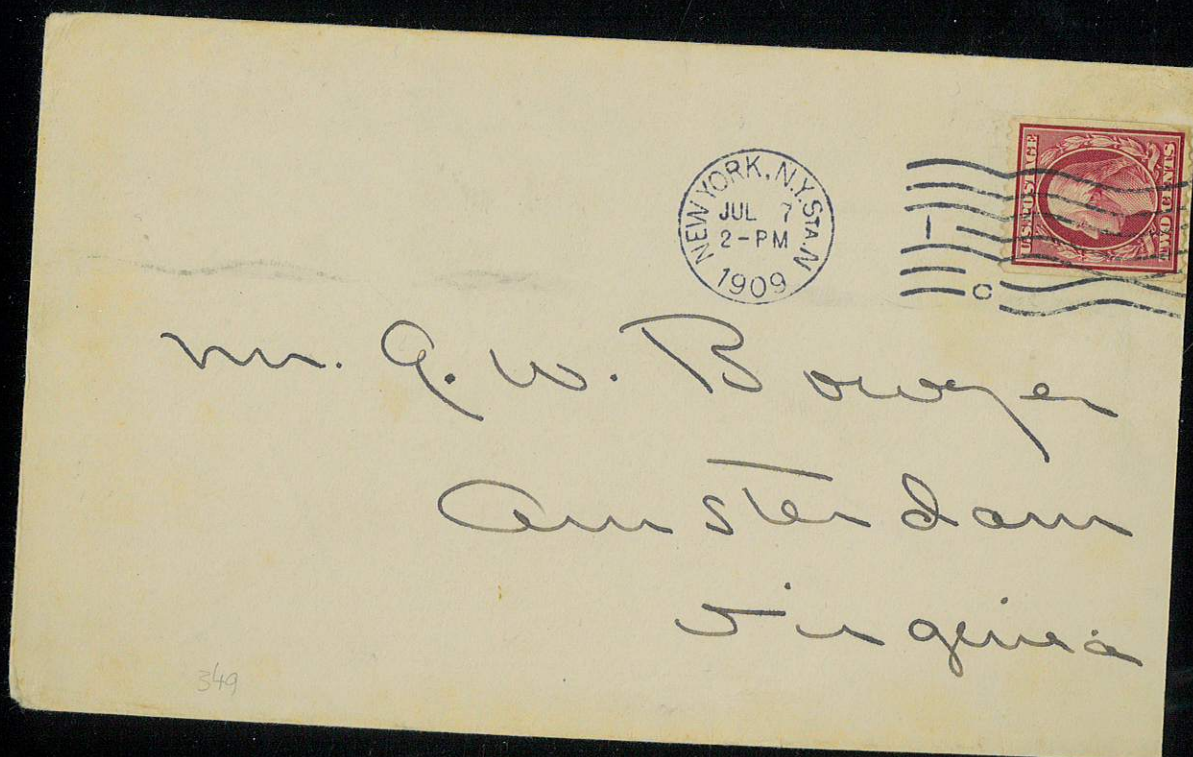 NEW YORK, N.Y. STA. N
JUL 7
2-PM
1909
U.S. POSTAGE
TWO CENTS
Mr. G. W. Bowyer
Amsterdam
Virginia
349